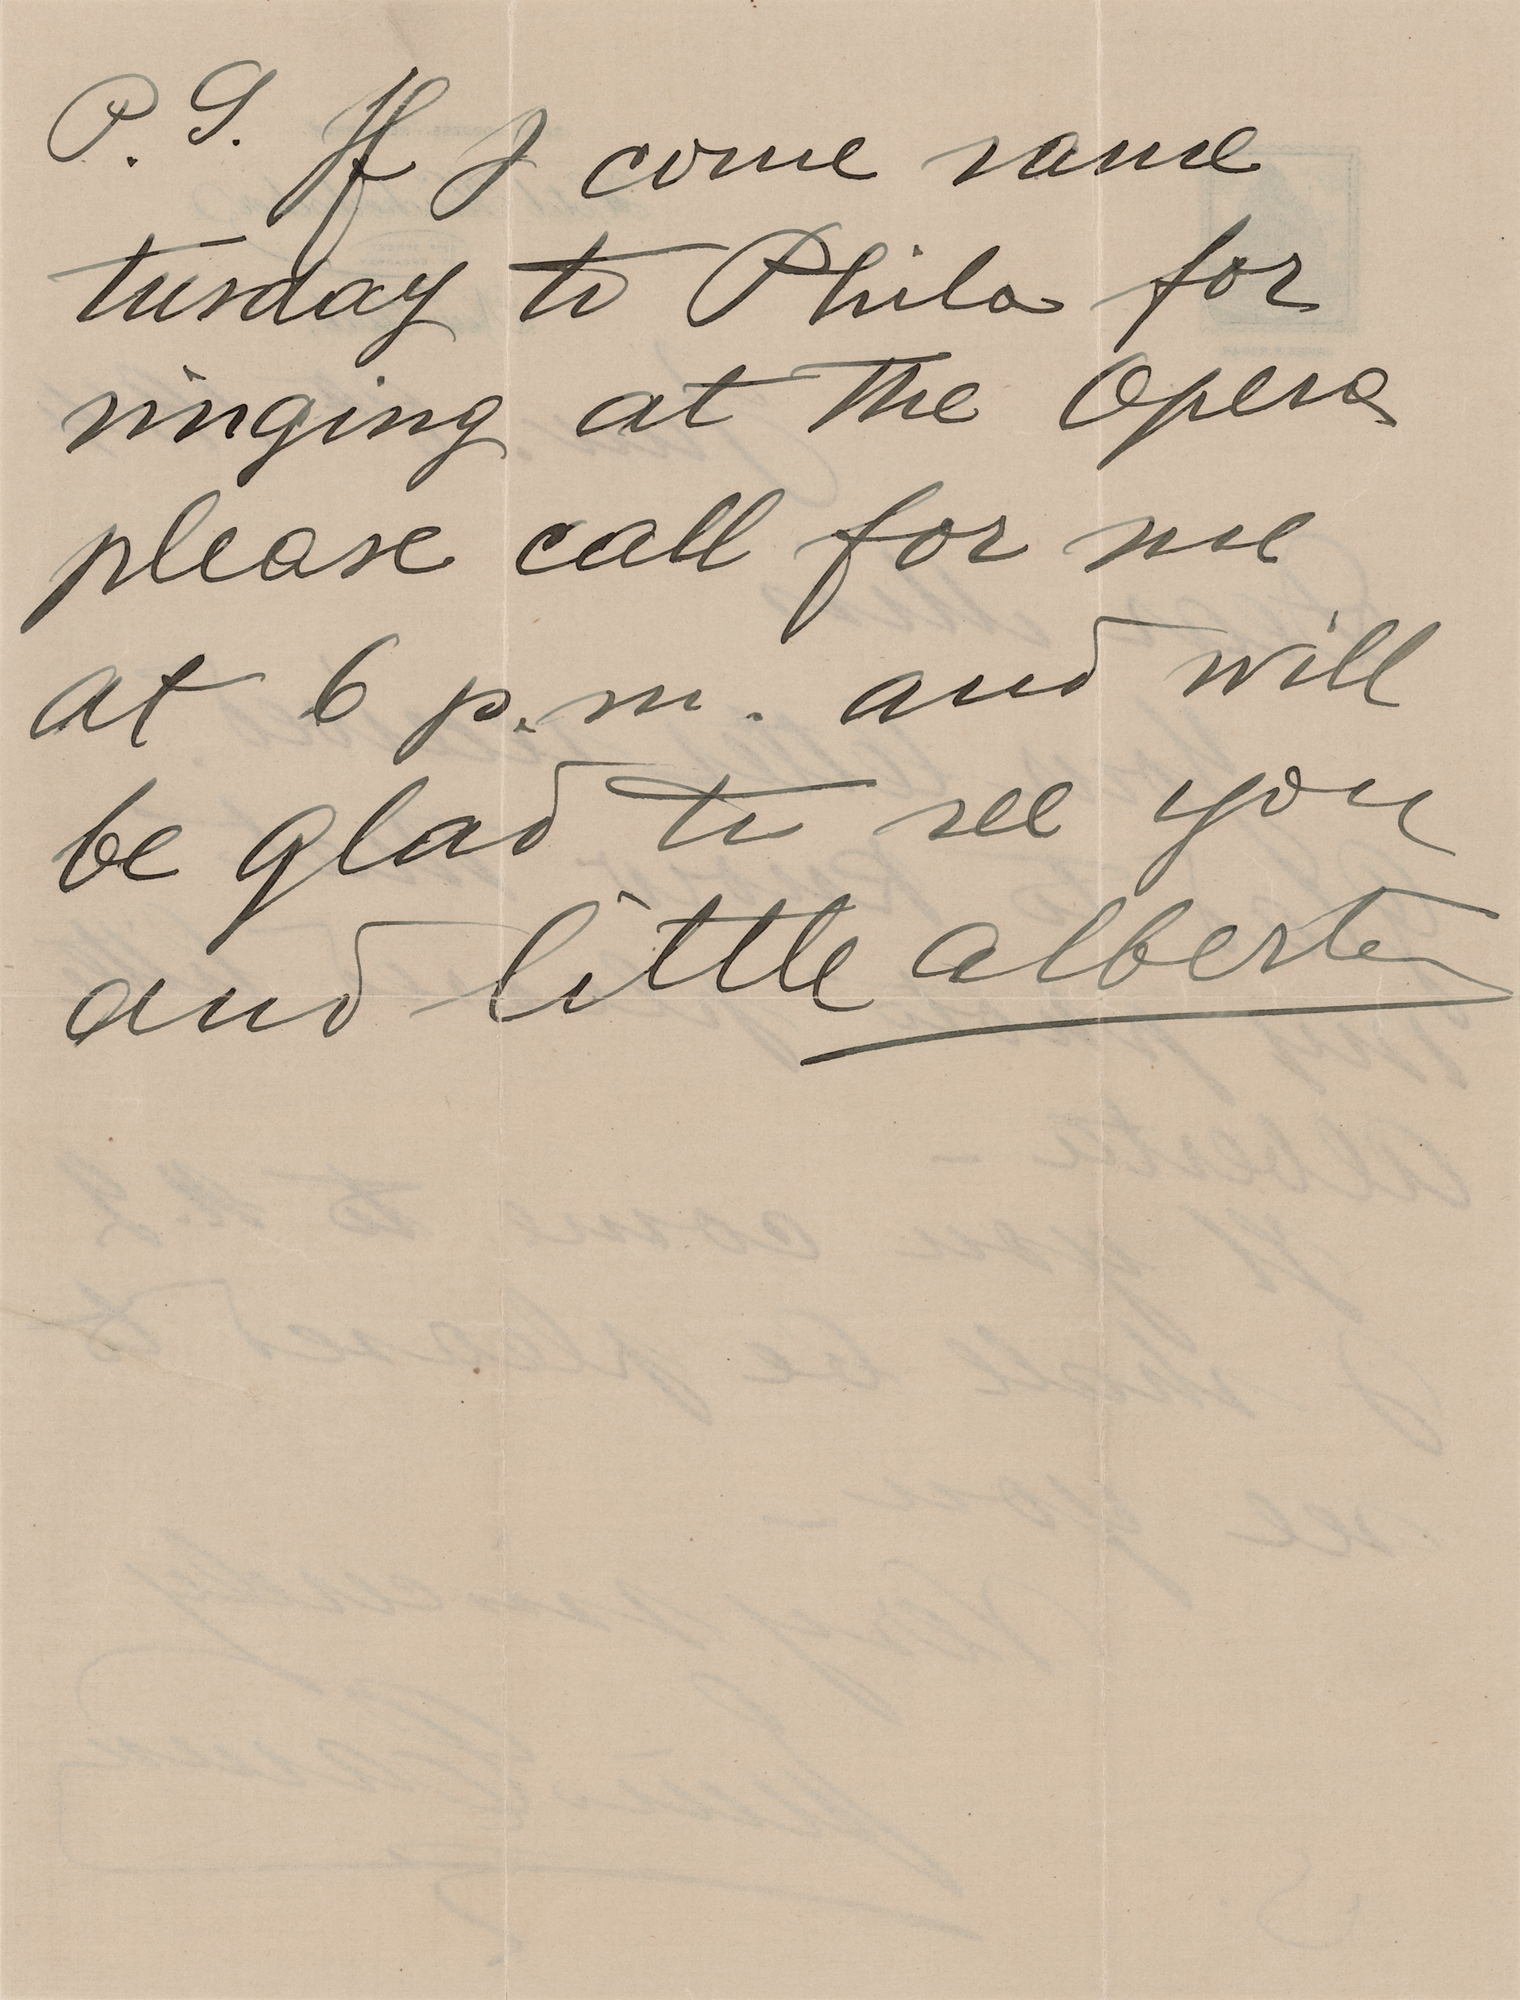 P.S. If I come same
tusday to Phila for
singing at the Opera
please call for me
at 6 p.m. and will
be glad to see you
and little alberta